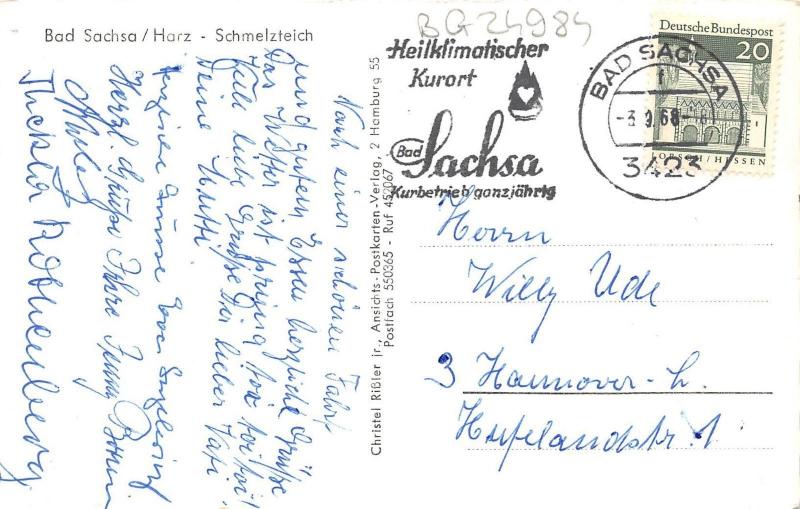 BG24984
Bad Sachsa/Harz - Schmelzteich
Heilklimatischer
Kurort
Bad Sachsa
Kurbetrieb ganzjährig
BAD SACHSA
f
-3.9.68-
3423
Deutsche Bundespost
20
LORSCH/HESSEN
Nach einer schönen Fahrt
und gutem Essen herzliche Grüße
Das Wetter ist prima, toi toi toi!
Viele liebe Grüße Dir lieber Vati
Deine Mutti
Herzliche Grüsse
Herzl. Grüße Ihre
Thekla Rothenberg
Christel Rißler jr., Ansichts-Postkarten-Verlag, 2 Hamburg 55
Postfach 550365 - Ruf 452067
Herrn
Willy Ude
3 Hannover-L.
Hufelandstr. 1